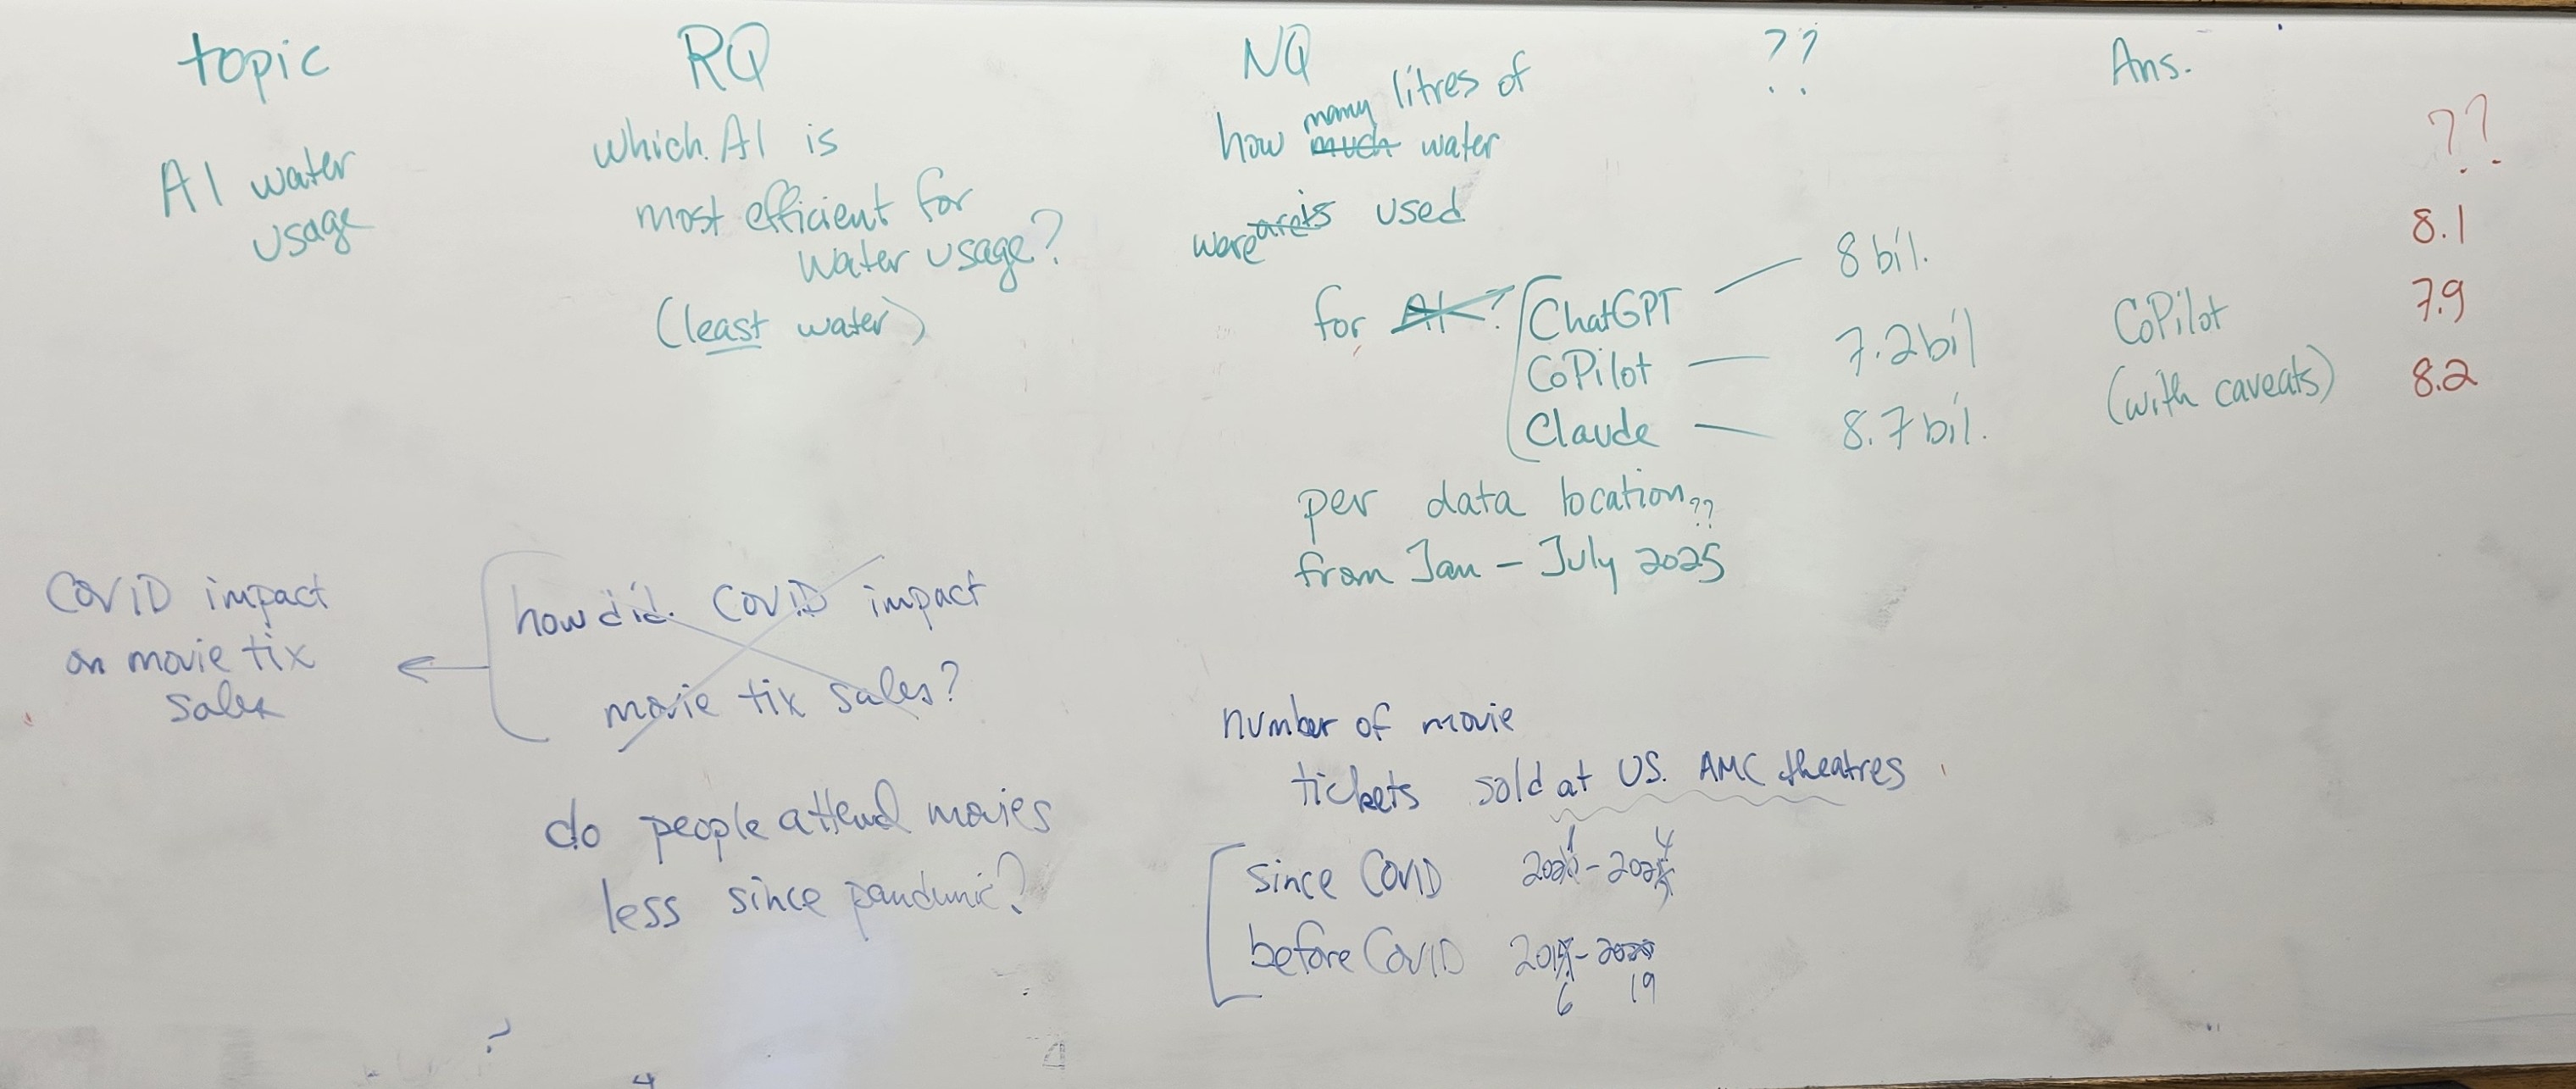 topic
AI water
usage
RQ
which AI is
most efficient for
water usage?
(least water)
NQ
many litres of
how much water
were are is used
for AI ?
ChatGPT
CoPilot
Claude
per data location ??
from Jan - July 2025
??
8 bil.
7.2 bil
8.7 bil.
Ans.
CoPilot
(with caveats)
??
8.1
7.9
8.2
COVID impact
on movie tix
sales
how did COVID impact
movie tix sales?
do people attend movies
less since pandemic?
number of movie
tickets sold at US. AMC theatres
since COVID
before COVID
6 19
?
4